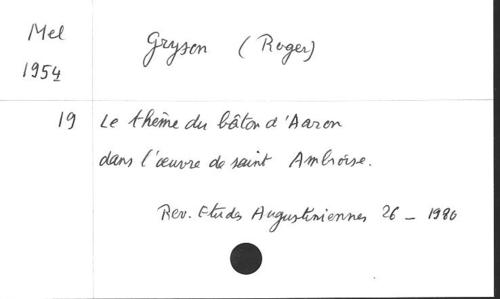 Mel
1954
Gryson (Roger)
19
Le thème du bâton d'Aaron
dans l'œuvre de saint Ambroise.
Rev. Etudes Augustiniennes 26 - 1980